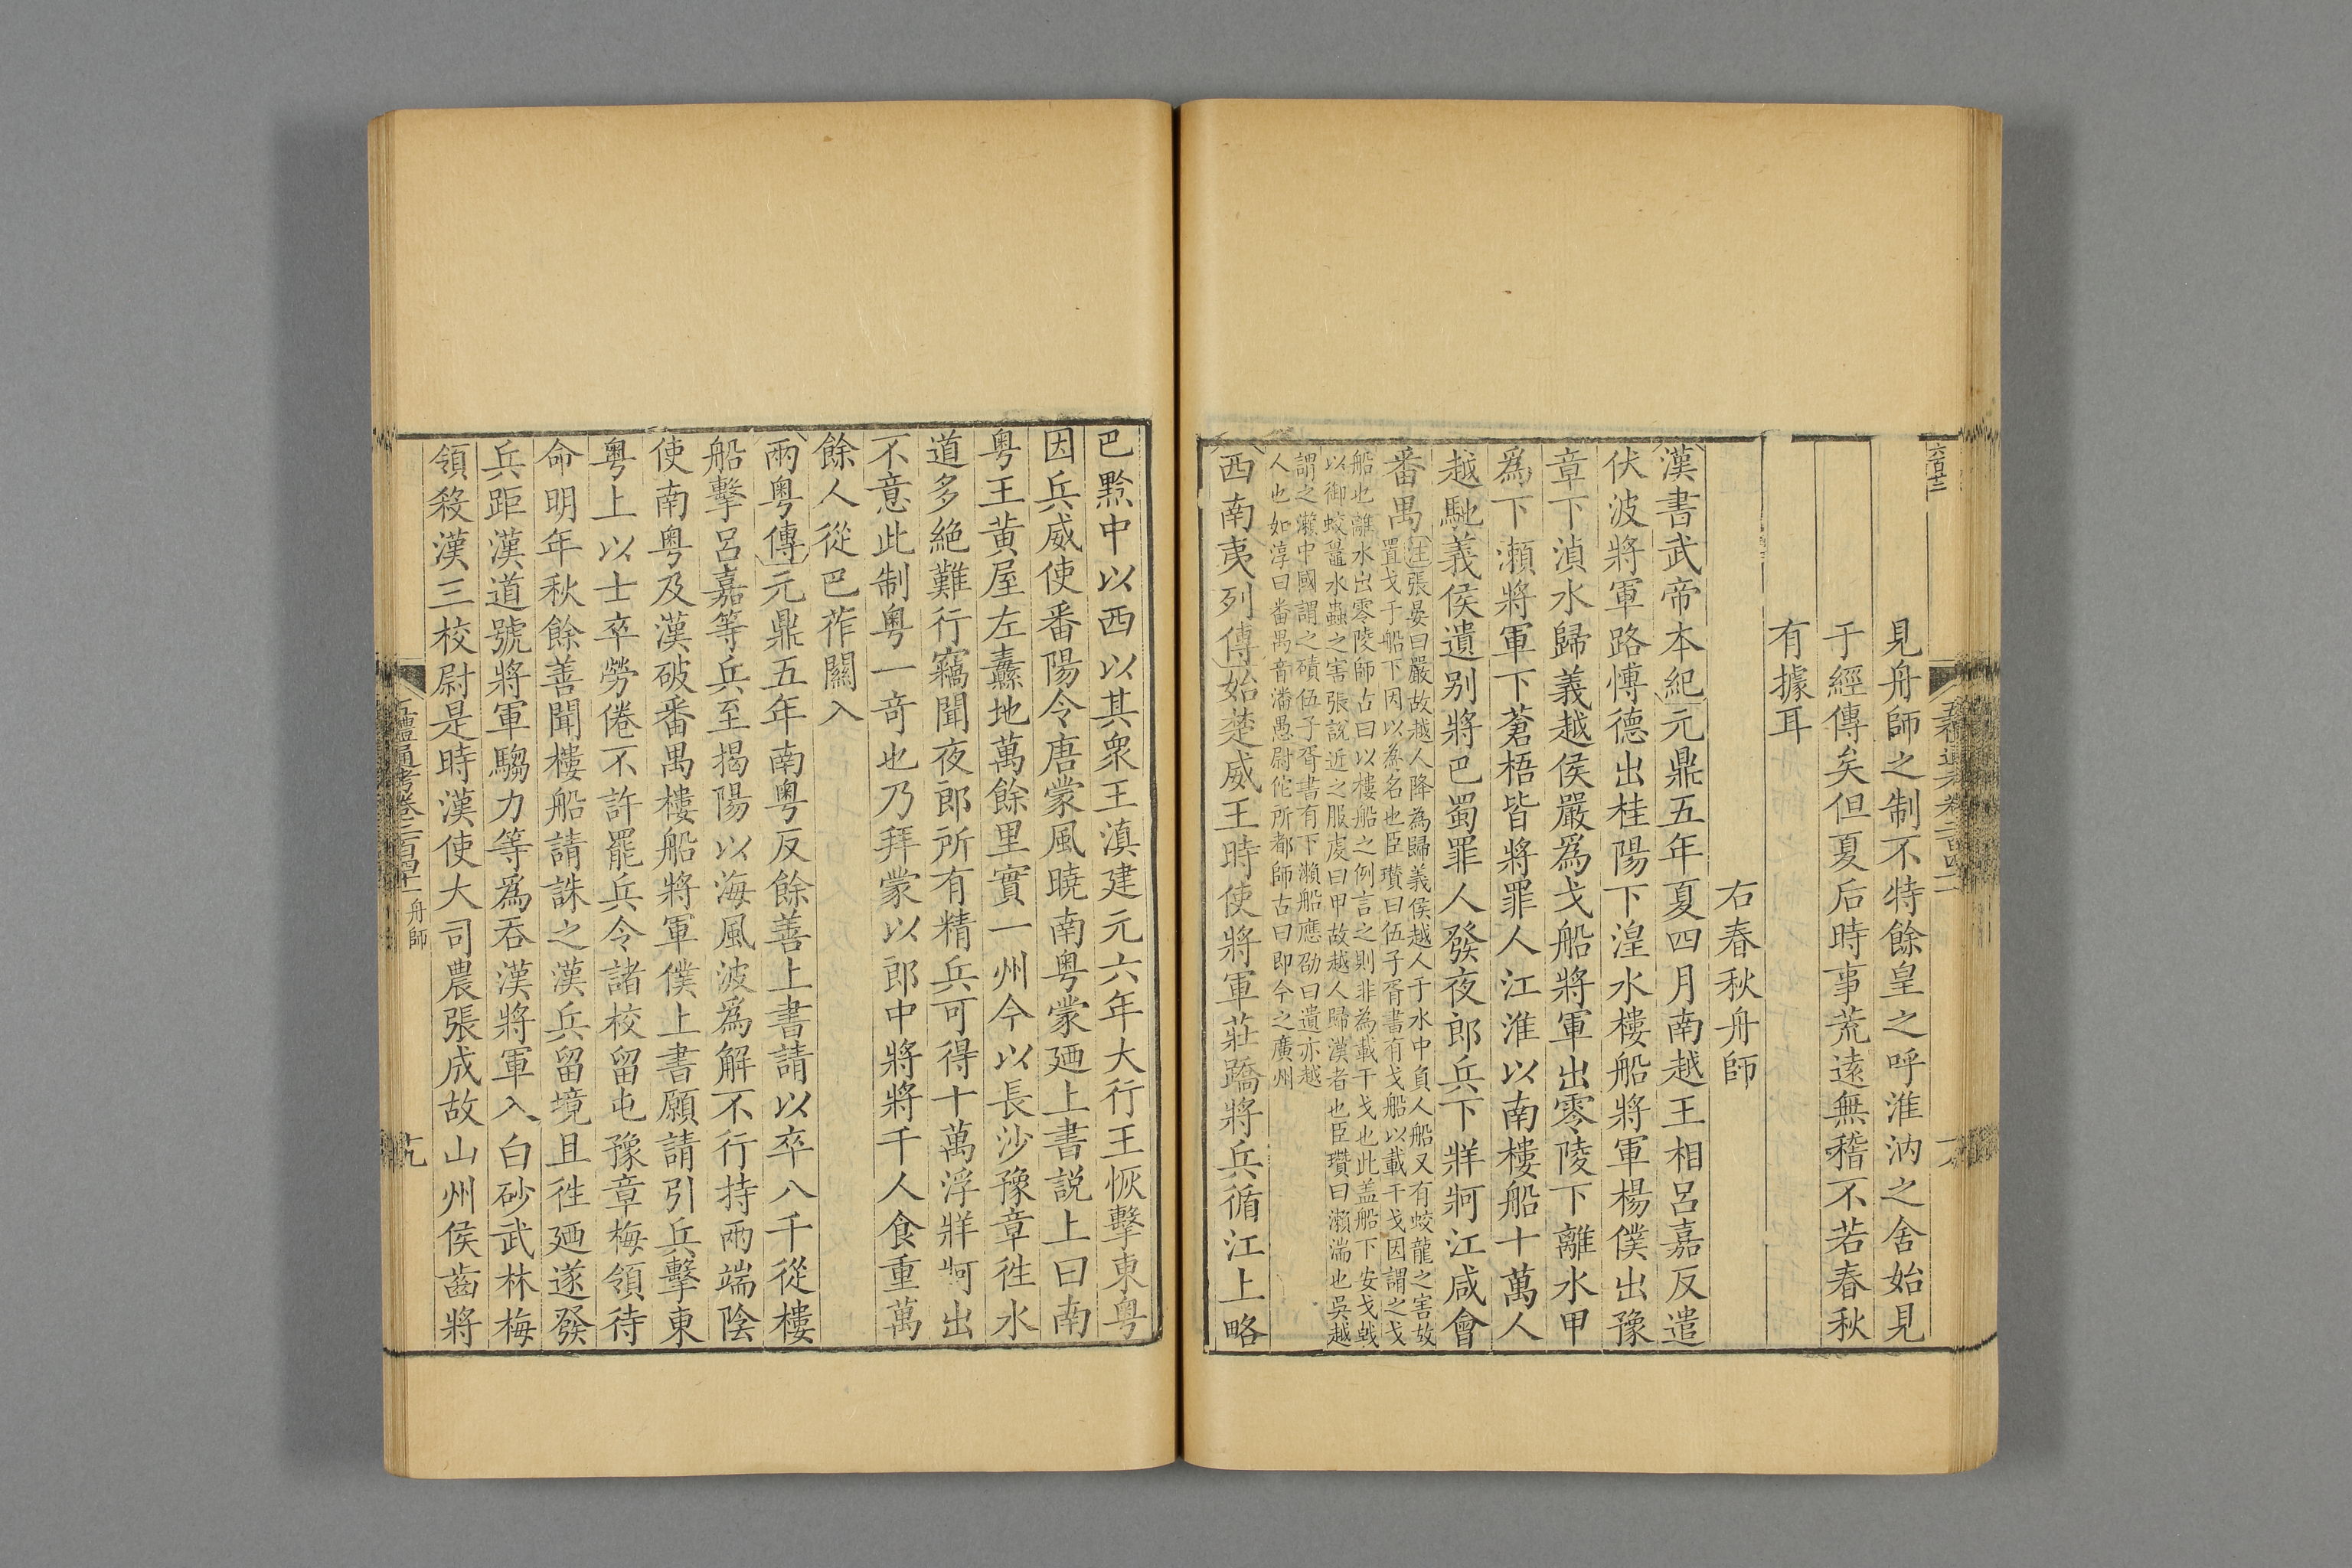 六百十二
見舟師之制不特餘皇之呼淮汭之舍始見
于經傳矣但夏后時事荒遠無稽不若春秋
有據耳
右春秋舟師
漢書武帝本紀元鼎五年夏四月南越王相呂嘉反遣
伏波將軍路博德出桂陽下湟水樓船將軍楊僕出豫
章下湞水歸義越侯嚴爲戈船將軍出零陵下離水甲
爲下瀨將軍下蒼梧皆將罪人江淮以南樓船十萬人
越馳義侯遺别將巴蜀罪人發夜郎兵下牂牁江咸會
番禺
注張晏曰嚴故越人降為歸義侯越人于水中負人船又有蛟龍之害故
置戈于船下因以為名也臣瓚曰伍子胥書有戈船以載干戈因謂之戈
船也離水出零陵師古曰以樓船之例言之則非為載干戈也此盖船下安戈戟
以御蛟鼉水蟲之害張說近之服虔曰甲故越人歸漢者也臣瓚曰瀨湍也吳越
謂之瀨中國謂之磧伍子胥書有下瀨船應劭曰遺亦越
人也如淳曰番禺音潘愚尉佗所都師古曰即今之廣州
西南夷列傳始楚威王時使將軍莊蹻將兵循江上略
巴黔中以西以其衆王滇建元六年大行王恢擊東粤
因兵威使番陽令唐蒙風曉南粤蒙廼上書説上曰南
粤王黄屋左纛地萬餘里實一州今以長沙豫章徃水
道多絶難行竊聞夜郎所有精兵可得十萬浮牂牁出
不意此制粤一竒也乃拜蒙以郎中將將千人食重萬
餘人從巴莋關入
兩粤傳元鼎五年南粤反餘善上書請以卒八千從樓
船擊呂嘉等兵至揭陽以海風波為解不行持兩端陰
使南粤及漢破番禺樓船將軍僕上書願請引兵擊東
粤上以士卒勞倦不許罷兵令諸校留屯豫章梅領待
命明年秋餘善聞樓船請誅之漢兵留境且徃廼遂發
兵距漢道號將軍騶力等爲吞漢將軍入白砂武林梅
領殺漢三校尉是時漢使大司農張成故山州侯齒將
五禮通考卷二百四十一 舟師